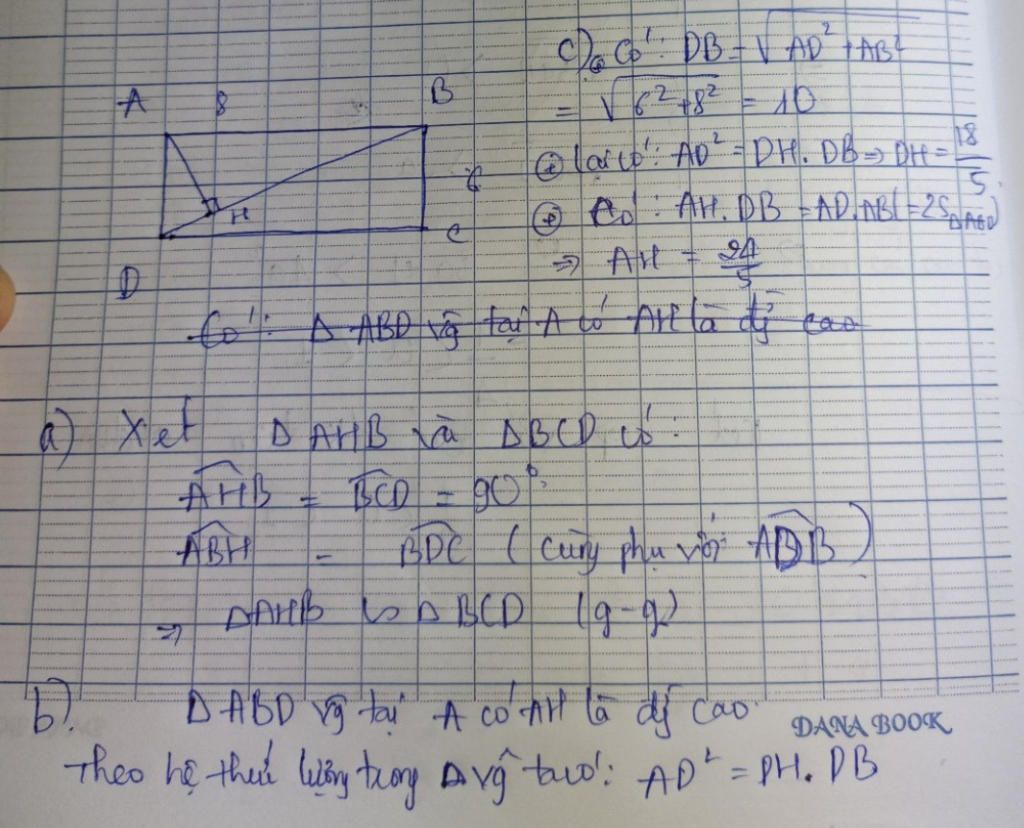 A 8 B
6
H
C
D
C) ⊕ Có: DB = √AD² + AB²
= √6² + 8² = 10
⊕ Lại có: AD² = DH. DB => DH = 18/5
⊕ Có: AH. DB = AD. AB (= 2S ΔABD)
=> AH = 24/5
Có: Δ ABD vg tại A có AH là đg cao
a) Xét Δ AHB và Δ BCD có:
AHB = BCD = 90°
ABH = BDC (cùng phụ với ADB)
=> Δ AHB ∽ Δ BCD (g-g)
b) Δ ABD vg tại A có AH là đg cao.
DANA BOOK
Theo hệ thức lượng trong Δ vg ta có: AD² = DH. DB